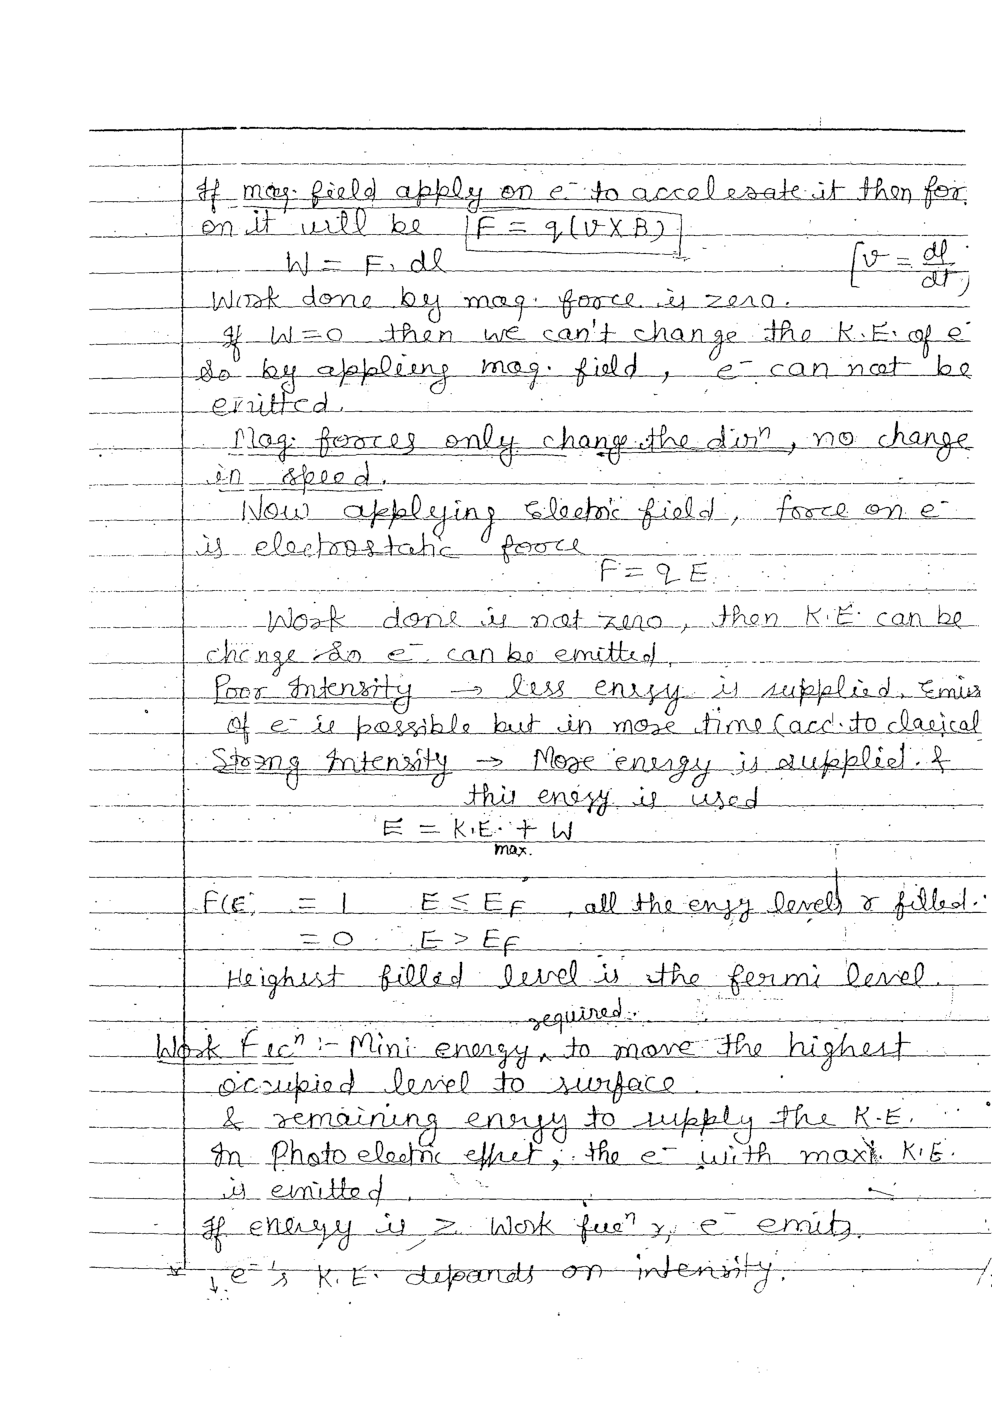 If mag. field apply on e⁻ to accelerate it then for
on it will be F = q(V×B)
W = F. dl [v = dl/dt]
Work done by mag. force is zero.
If W=0 then we can't change the K.E. of e⁻
So by applieng mag. field, e⁻ can not be
emitted.
Mag. forces only change the dirⁿ, no change
in speed.
Now applying Electric field, force on e⁻
is electrostatic force
F = q E
Work done is not zero, then K.E. can be
change so e⁻ can be emitted.
Poor Intensity → less energy is supplied. Emiss
of e⁻ is possible but in more time (acc. to clasical
Strong Intensity → More energy is supplied. &
this energy is used
E = K.E. + W
max.
F(E) = 1 E ≤ E_F , all the enrgy levels r filled.
= 0 E > E_F
Heighest filled level is the fermi level.
required.
Work Fucⁿ :- Mini energy ^ to move the highest
occupied level to surface.
& remaining energy to supply the K.E.
In Photo electric effect, the e⁻ with max. K.E.
is emitted.
If energy is ≥ Work fucⁿ, e⁻ emits.
* ↓ e⁻'s K.E. depands on intensity.